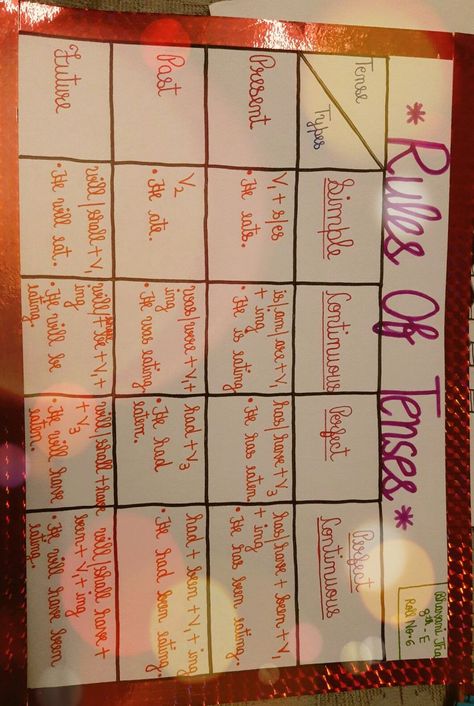 *Rules Of Tenses*
8th - E
Roll No-6
Tense
Types
Simple
Continuous
Perfect
Perfect
Continuous
Present
V1 + s/es
• He eats.
is/am/are + V1
+ ing
• He is eating
has/have + V3
• He has eaten
has/have + been + V1
+ ing
• He has been eating.
Past
V2
• He ate.
was/were + V1 +
ing
• He was eating
had + V3
• He had
eaten.
had + been + V1 + ing
• He had been eating.
Future
will/shall + V1
• He will eat.
will/shall + be + V1 +
ing
• He will be
eating.
will/shall + have
+ V3
• He will have
eaten.
will/shall have +
been + V1 + ing
• He will have been
eating.